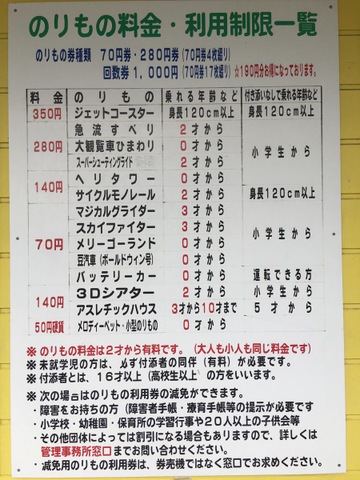 のりもの料金・利用制限一覧
のりもの券種類 70円券・280円券(70円券4枚綴り)
回数券 1,000円(70円券17枚綴り) ☆190円分お得になっております。
料金 のりもの 乗れる年齢など 付き添いなしで乗れる年齢など
350円 ジェットコースター 身長120cm以上 身長120cm以上
急流すべり 2才から
280円 大観覧車ひまわり 0才から 小学生から
スーパーシューティングライド 2才から
140円 ヘリタワー 0才から
サイクルモノレール 2才から 身長120cm以上
マジカルグライダー 3才から
スカイファイター 3才から 小学生から
70円 メリーゴーランド 0才から
豆汽車(ボールドウィン号) 0才から
バッテリーカー 0才から 運転できる方
140円 3Dシアター 2才から 小学生から
アスレチックハウス 3才から10才まで 5才から
50円硬貨 メロディーペット・小型のりもの 0才から
※のりもの料金は2才から有料です。(大人も小人も同じ料金です)
※未就学児の方は、必ず付添者の同伴(有料)が必要です。
※付添者とは、16才以上(高校生以上)の方をいいます。
※次の場合はのりもの利用券の減免ができます。
・障害をお持ちの方(障害者手帳・療育手帳等の提示が必要です
・小学校・幼稚園・保育所の学習行事や20人以上の子供会等
・その他団体によっては割引になる場合もありますので、詳しくは
管理事務所窓口までお問い合わせください。
・減免用のりもの利用券は、券売機ではなく窓口でお求めください。